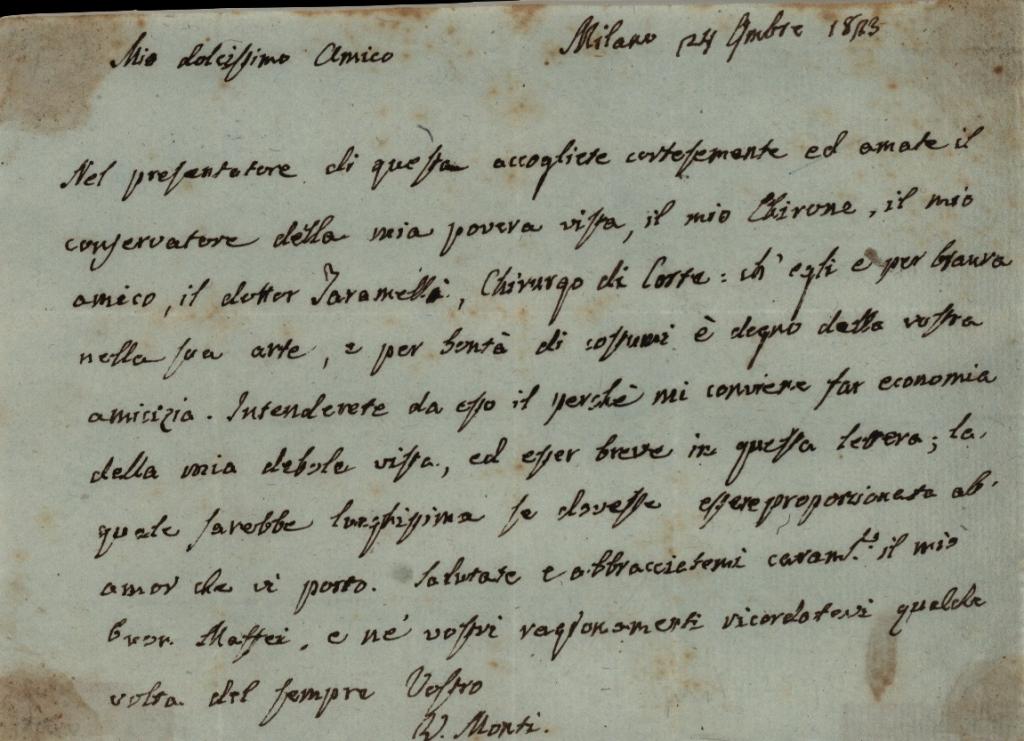 Mio dolcissimo Amico Milano 24 9mbre 1823
Nel presentatore di questa accogliete cortesemente ed amate il
conservatore della mia povera vista, il mio Chirone, il mio
amico, il dottor Taramelli, Chirurgo di Corte: ch' egli e per bravura
nella sua arte, e per bontà di costumi è degno della vostra
amicizia. Intenderete da esso il perchè mi conviene far economia
della mia debole vista, ed esser breve in questa lettera; la
quale sarebbe lunghissima se dovesse essere proporzionata all'
amor che vi porto. Salutate e abbracciatemi caram.te il mio
buon Maffei, e ne' vostri ragionamenti ricordatevi qualche
volta del sempre Vostro
V. Monti.